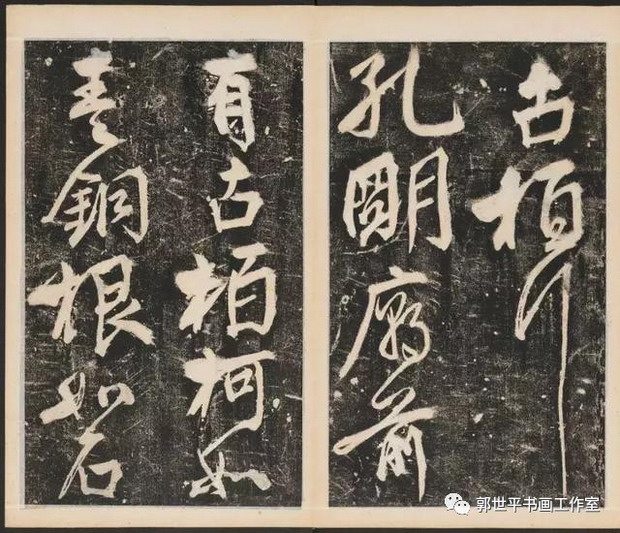 古柏行
孔明廟前
有古柏柯如
青銅根如石
郭世平书画工作室